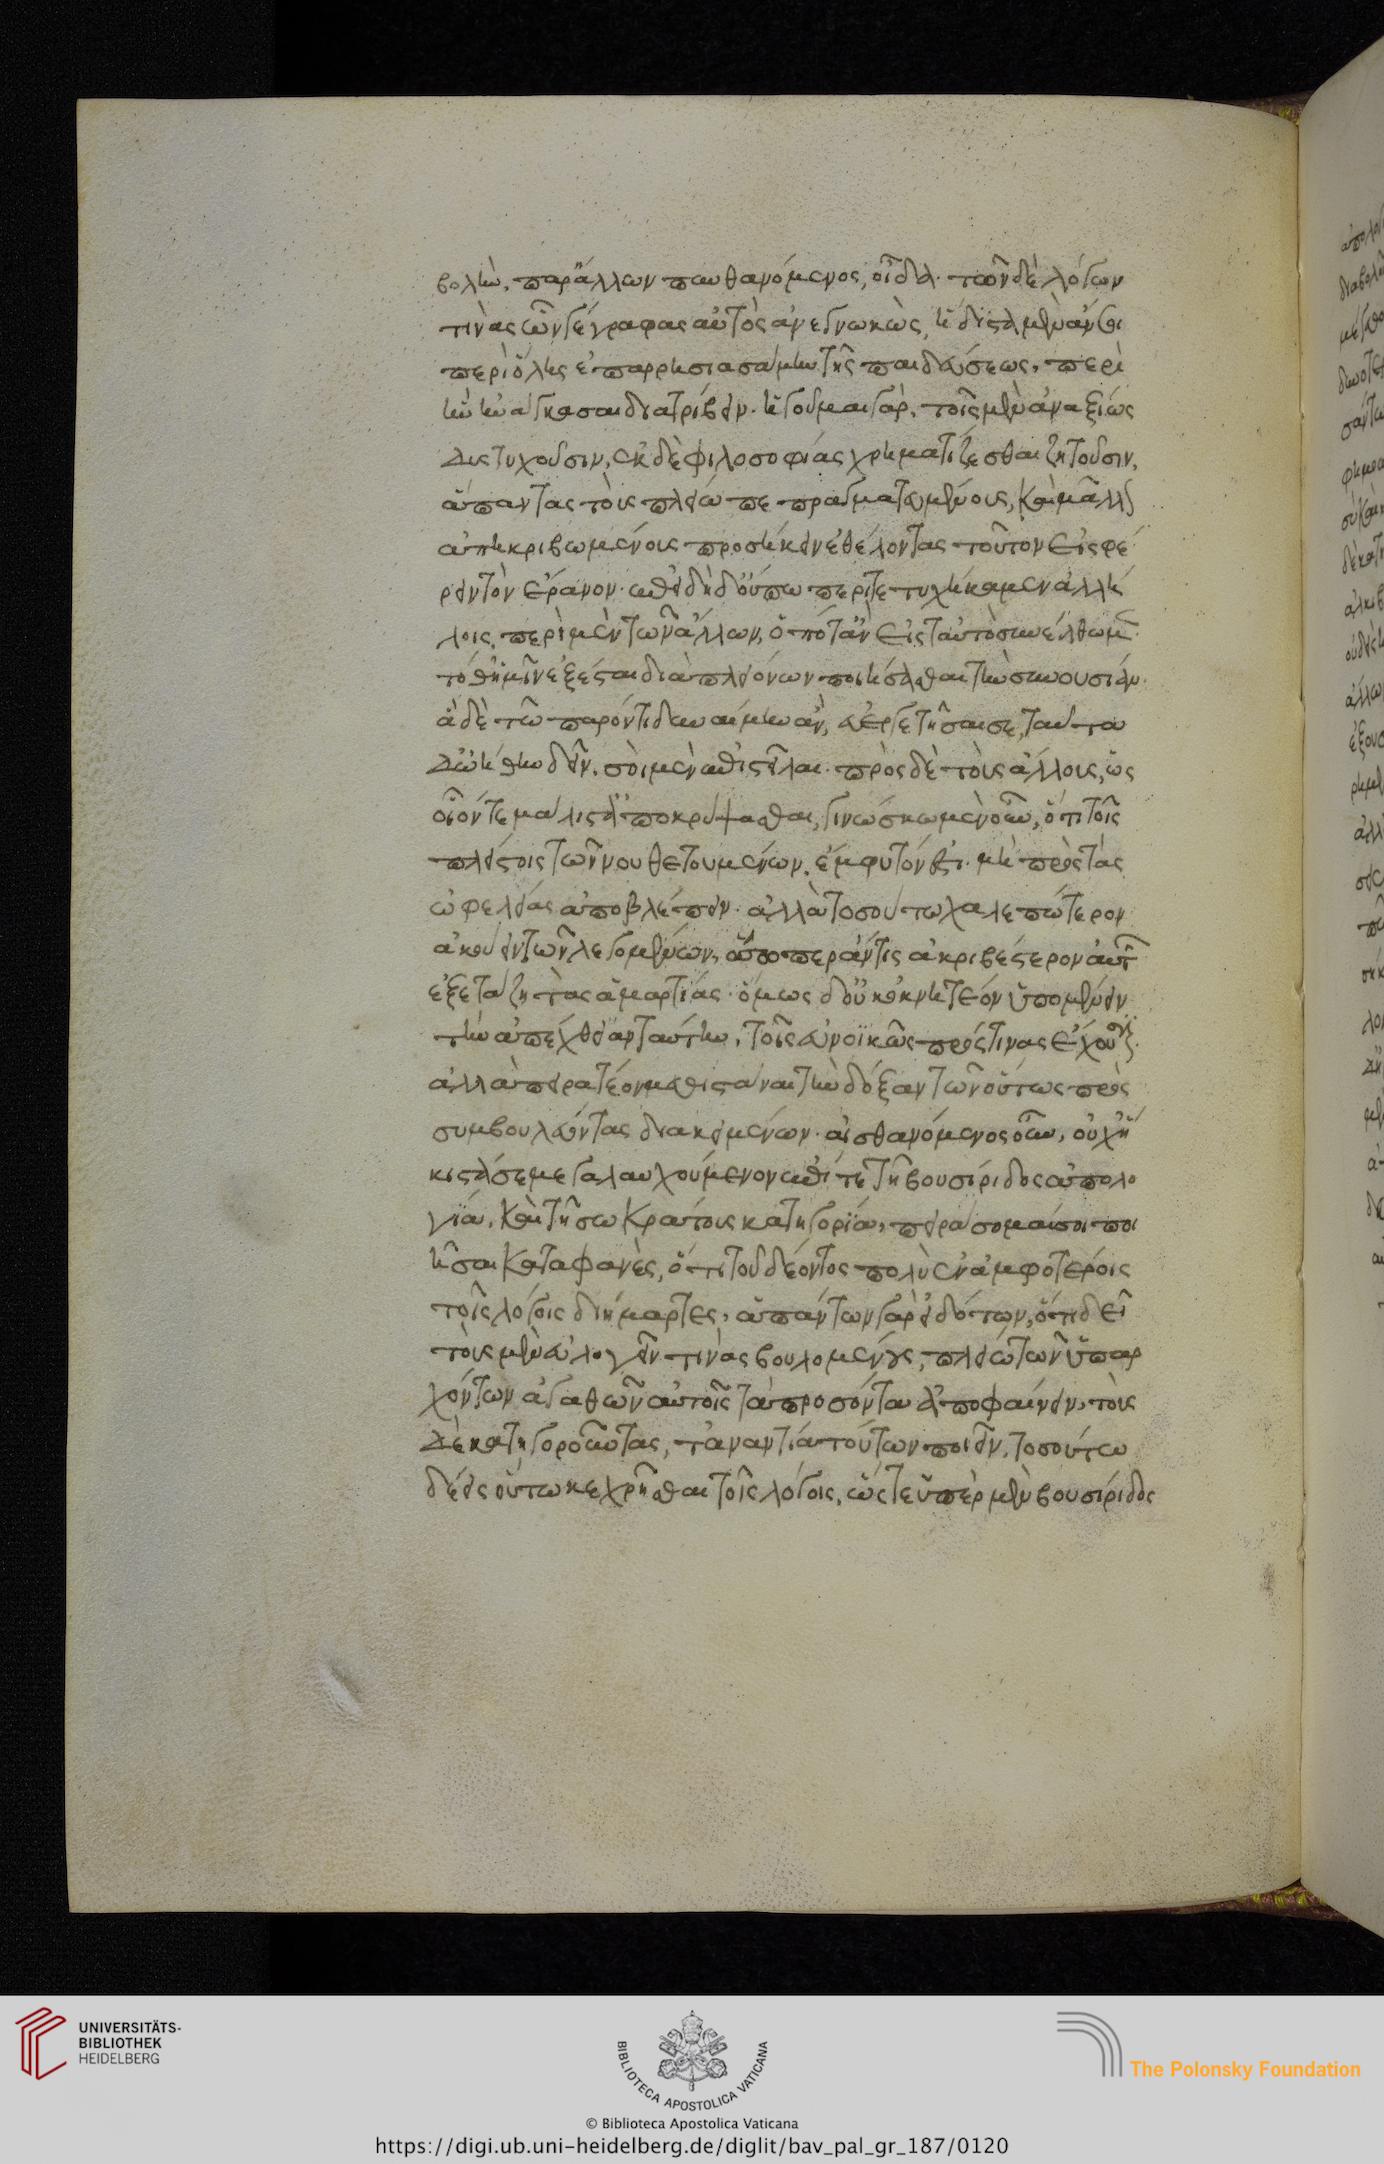 βολὴν, παρ' ἄλλων πυνθανόμενος, οἶδα. τῶν δὲ λόγων
τινὰς ὧν γέγραφας αὐτὸς ἀνεγνωκὼς, ἥδιστα μὲν ἄν σοι
περὶ ὅλης ἐπαρρησιασάμην τῆς παιδεύσεως, περὶ
ἣν ἠνάγκασαι διατρίβειν. ἡγοῦμαι γὰρ, τοῖς μὲν ἀναξίως
δυστυχοῦσιν, ἐκ δὲ φιλοσοφίας χρηματίζεσθαι ζητοῦσιν,
ἅπαντας τοὺς πλείω πεπραγματευμένους, καὶ μᾶλλον
ἀπηκριβωμένους προσήκειν ἐθέλοντας τοῦτον εἰσφέ
ρειν τὸν ἔρανον. ἐπειδὴ δ' οὔπω περιτετυχήκαμεν ἀλλή
λοις, περὶ μὲν τῶν ἄλλων, ὁπόταν εἰς ταὐτὸ συνέλθωμεν
τόθ' ἡμῖν ἐξέσται διὰ πλειόνων ποιήσασθαι τὴν συνουσίαν.
ἃ δὲ τῷ παρόντι δυναίμην ἂν, εὐεργετῆσαί σε, ταῦτα
δ' ᾠήθην δεῖν, σοὶ μὲν ἐπιστεῖλαι. πρὸς δὲ τοὺς ἄλλους, ὡς
οἷόν τε μάλιστ' ἀποκρύψασθαι, γινώσκω μὲν οὖν, ὅτι τοῖς
πλείστοις τῶν νουθετουμένων, ἔμφυτόν ἐστι. μὴ πρὸς τὰς
ὠφελείας ἀποβλέπειν. ἀλλὰ τοσούτω χαλεπώτερον
ἀκούειν τῶν λεγομένων, ὅσοπερ ἄν τις ἀκριβέστερον αὐτῶν
ἐξετάζη τὰς ἁμαρτίας. ὅμως δ' οὐκ ὀκνητέον ὑπομένειν
τὴν ἀπέχθειαν ταύτην, τοῖς εὐνοϊκῶς πρός τινας ἔχουσιν.
ἀλλὰ πειρατέον μεθιστάναι τὴν δόξαν τῶν οὕτως πρὸς
συμβουλεύοντας διακειμένων. αἰσθανόμενος οὖν, οὐχ ἥ
κιστά σε μεγαλαυχούμενον ἐπί τε τῆ βουσίριδος ἀπολο
γία, καὶ τῆ σωκράτους κατηγορία, πειράσομαί σοι ποι
ῆσαι καταφανὲς, ὅτι τοῦ δέοντος πολὺ ἐν ἀμφοτέροις
τοῖς λόγοις διήμαρτες, ἁπάντων γὰρ εἰδότων, ὅτι δεῖ
τοὺς μὲν εὐλογεῖν τινὰς βουλομένους, πλείω τῶν ὑπαρ
χόντων ἀγαθῶν αὐτοῖς τὰ προσόντα ἀποφαίνειν, τοὺς
δὲ κατηγοροῦντας, τἀναντία τούτων ποιεῖν, τοσούτω
δεῖς οὕτω κεχρῆσθαι τοῖς λόγοις, ὥστε ὑπὲρ μὲν βουσίριδος
UNIVERSITÄTS-
BIBLIOTHEK
HEIDELBERG
BIBLIOTECA APOSTOLICA VATICANA
The Polonsky Foundation
© Biblioteca Apostolica Vaticana
https://digi.ub.uni-heidelberg.de/diglit/bav_pal_gr_187/0120